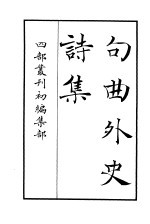 句曲外史
詩集
四部叢刊初編集部